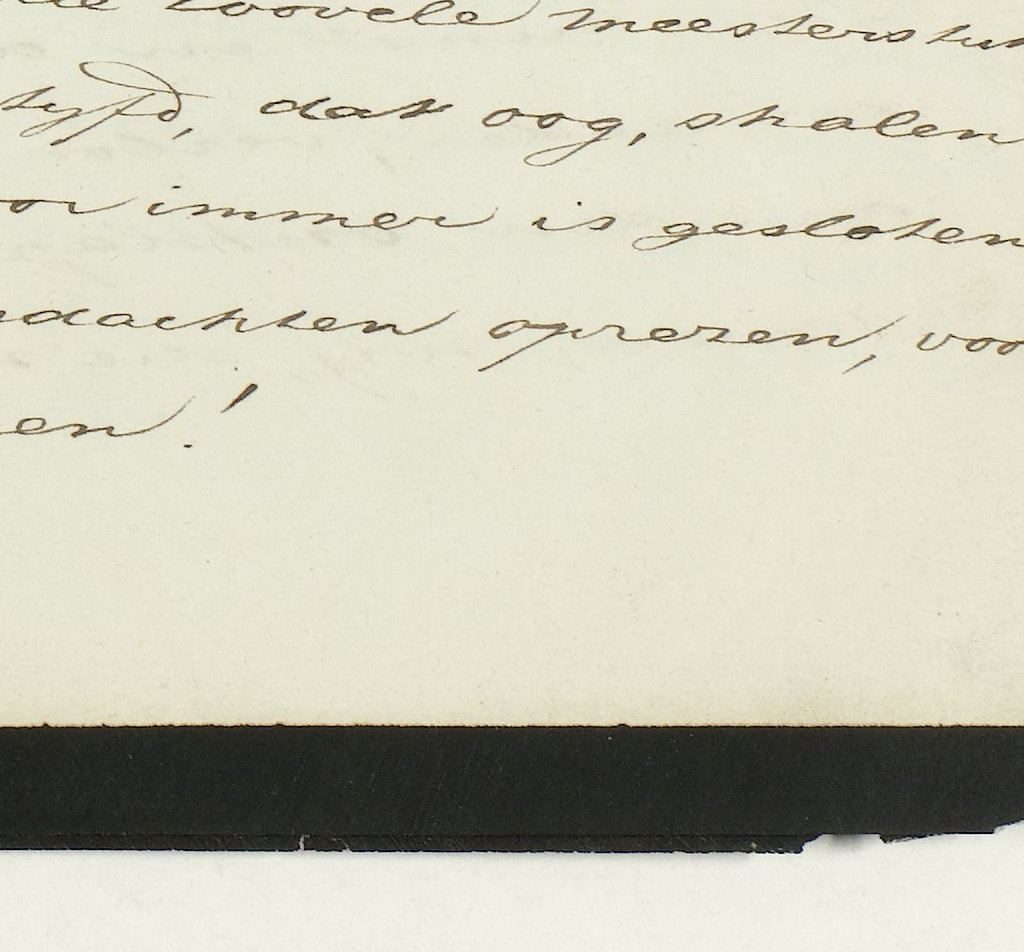 die zoovele meesterstuk
styfd, dat oog, stralen
oor immer is gesloten
ndachten oprezen, voo
en!